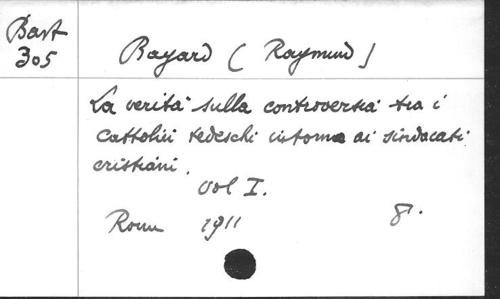 Bast
305
Bayard (Raymund)
La verità sulla controversia tra i
Cattolici tedeschi intorno ai sindacati
cristiani.
Vol I.
Roma 1911 8°.